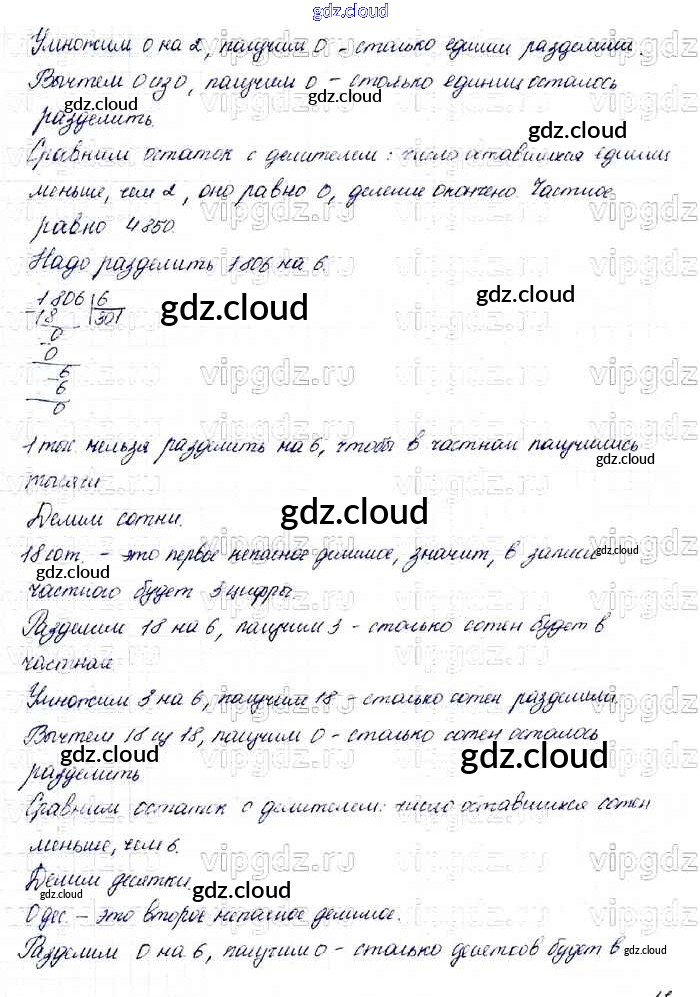 gdz.cloud
Умножим 0 на 2, получим 0 - столько единиц разделили.
Вычтем 0 из 0, получим 0 - столько единиц осталось
gdz.cloud gdz.cloud
разделить.
gdz.cloud
Сравним остаток с делителем: число оставшихся единиц
меньше, чем 2, оно равно 0, деление окончено. Частное
vipgdz.ru gdz.cloud vipgdz.ru
равно 4850.
Надо разделить 1806 на 6.
1806 6
gdz.cloud gdz.cloud
18 301
0
0
6
vipgdz.ru vipgdz.ru vipgdz.ru
6
0
1 тыс. нельзя разделить на 6, чтобы в частном получились
gdz.cloud
тысячи.
Делим сотни.
gdz.cloud
18 сот. - это первое неполное делимое, значит, в записи
gdz.cloud
gdz.cloud
частного будет 3 цифры.
Разделим 18 на 6, получим 3 - столько сотен будет в
частном.
Умножим 3 на 6, получим 18 - столько сотен разделили.
Вычтем 18 из 18, получим 0 - столько сотен осталось
gdz.cloud gdz.cloud
разделить.
Сравним остаток с делителем: число оставшихся сотен
меньше, чем 6.
vipgdz.ru vipgdz.ru vipgdz.ru
Делим десятки.
gdz.cloud gdz.cloud
0 дес. - это второе неполное делимое.
Разделим 0 на 6, получим 0 - столько десятков будет в
gdz.cloud